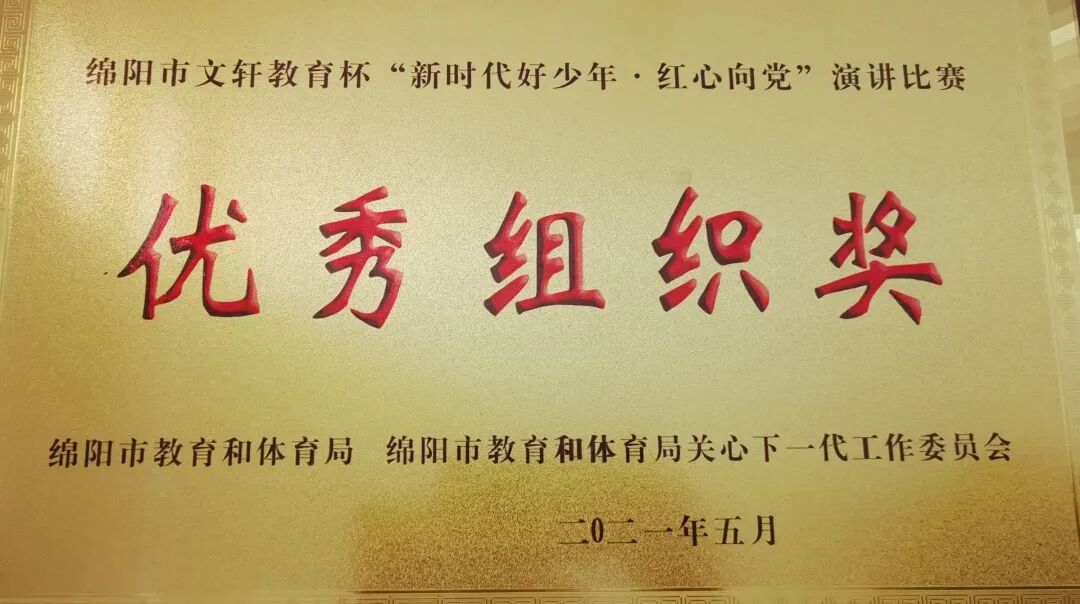 绵阳市文轩教育杯“新时代好少年·红心向党”演讲比赛
优秀组织奖
绵阳市教育和体育局 绵阳市教育和体育局关心下一代工作委员会
二〇二一年五月